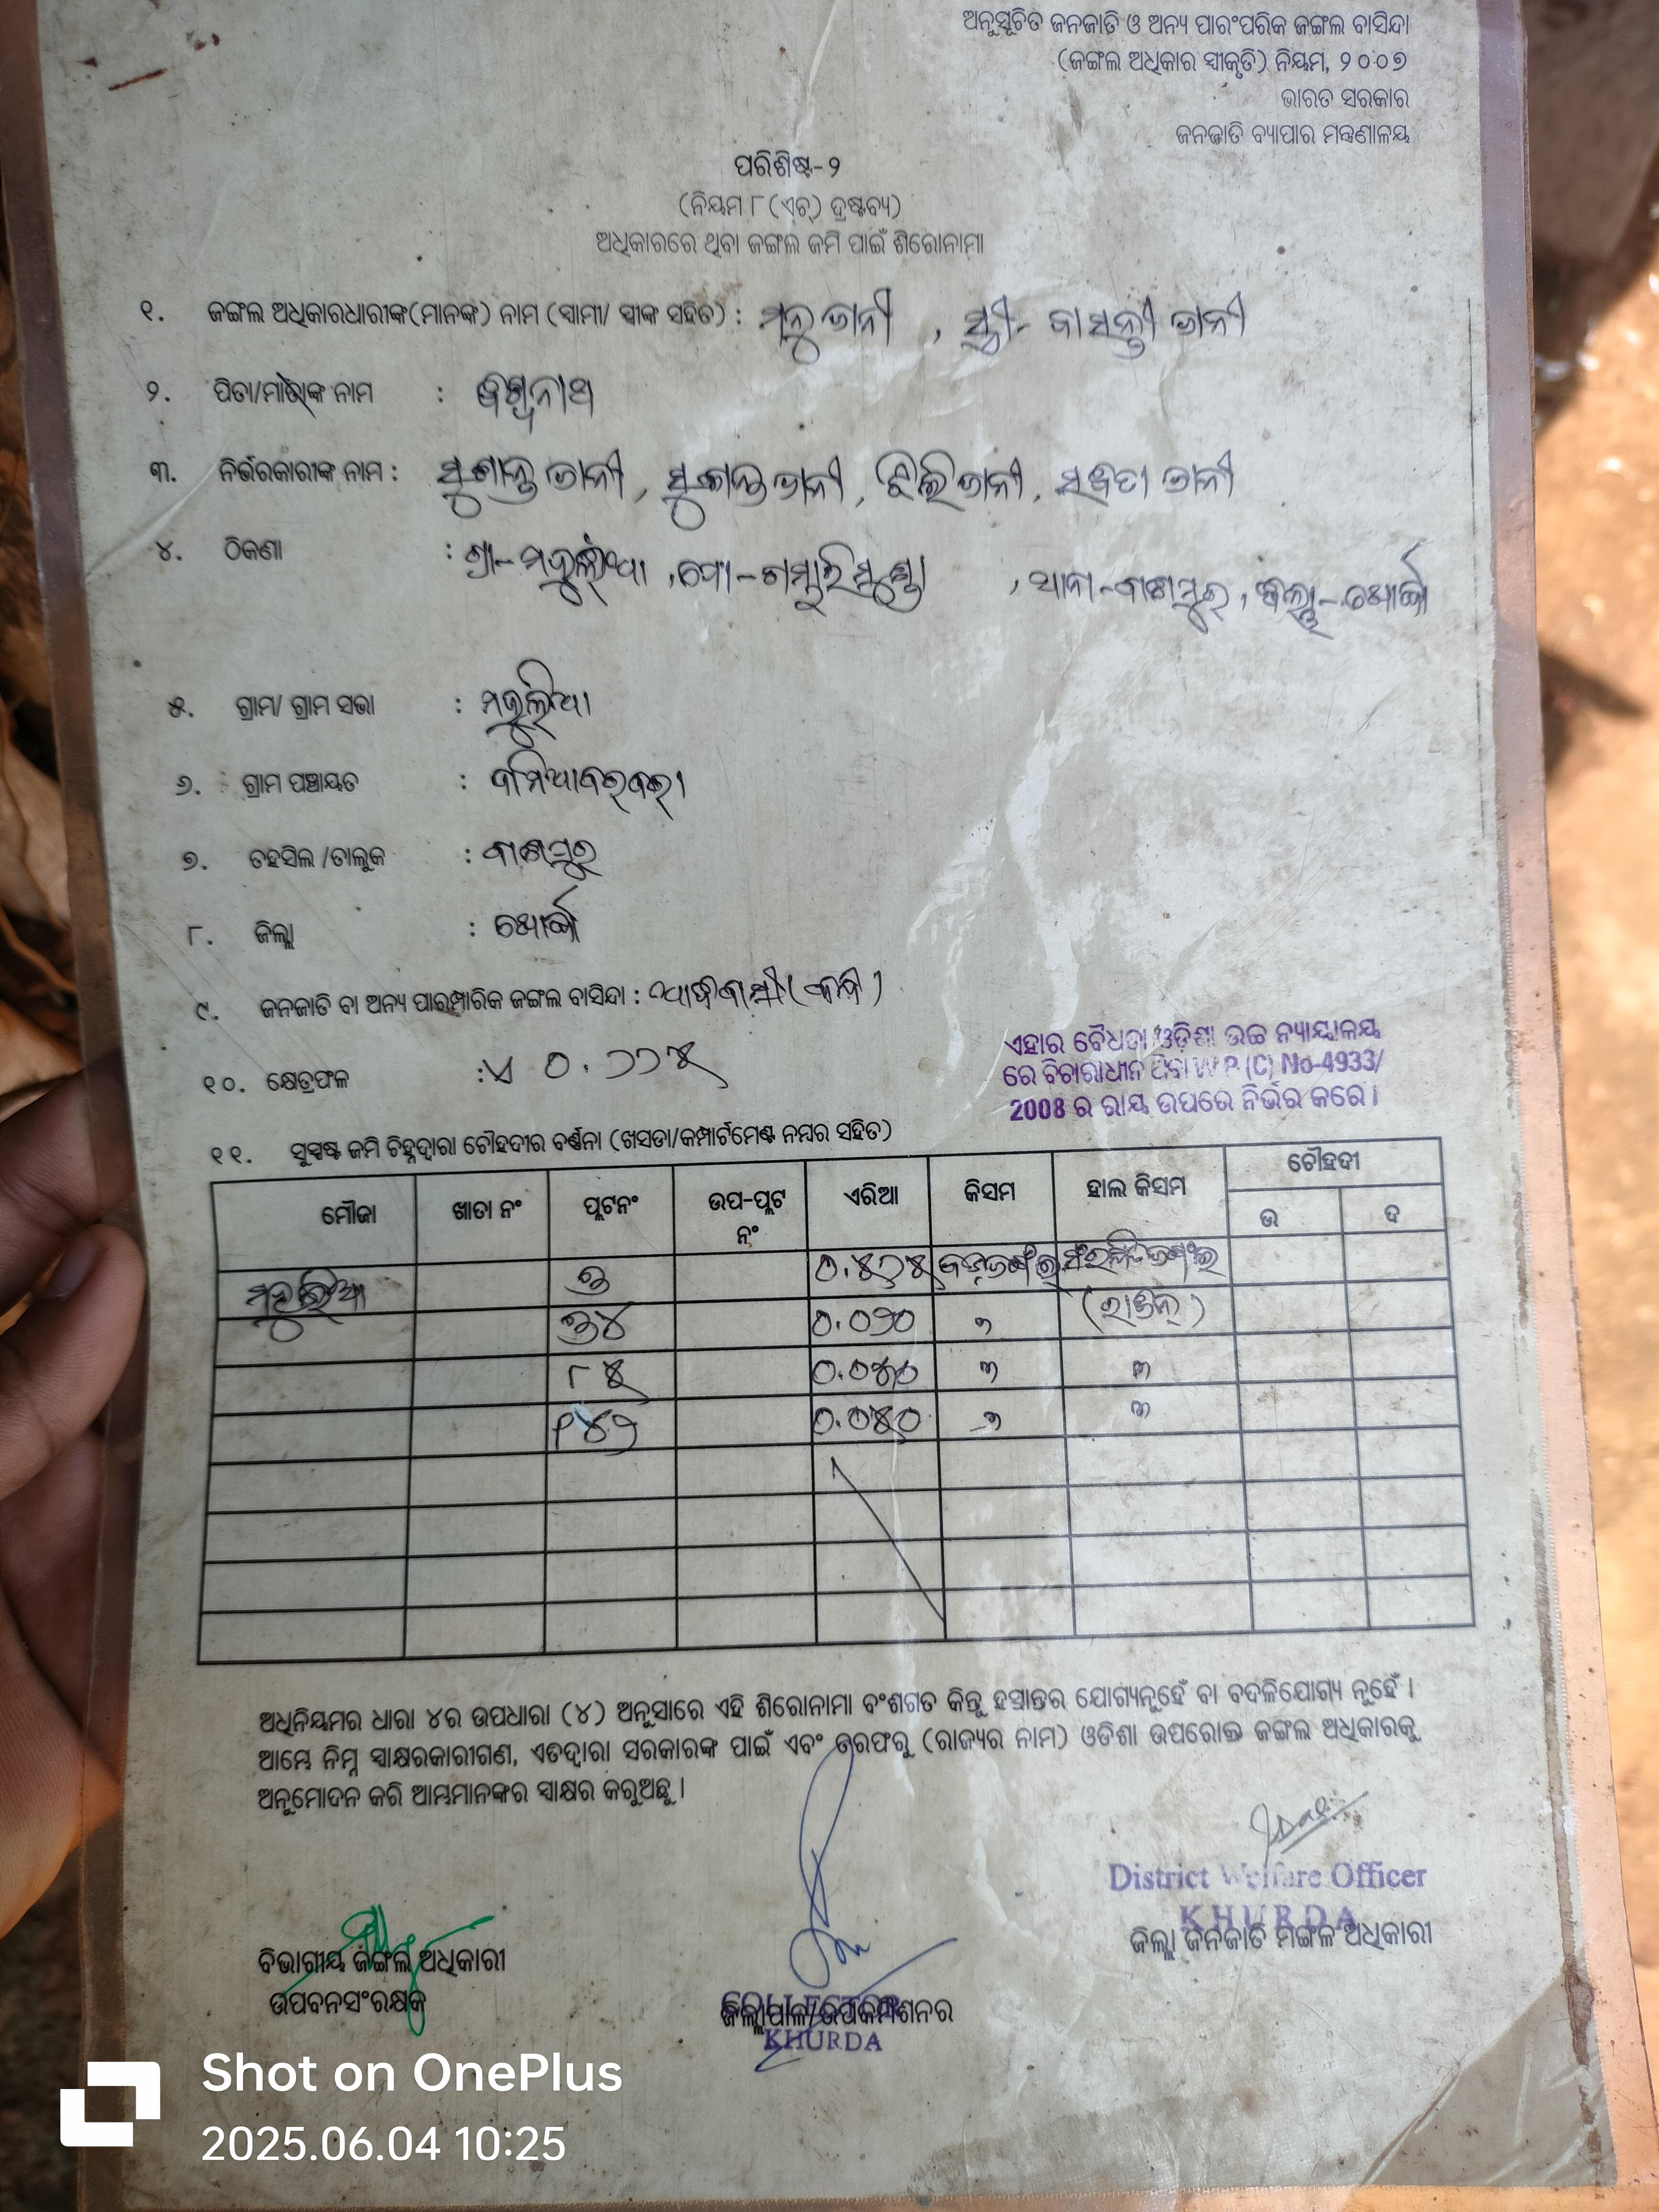 ଅନୁସୂଚିତ ଜନଜାତି ଓ ଅନ୍ୟ ପାରଂପରିକ ଜଙ୍ଗଲ ବାସିନ୍ଦା
(ଜଙ୍ଗଲ ଅଧିକାର ସ୍ୱୀକୃତି) ନିୟମ, ୨୦୦୭
ଭାରତ ସରକାର
ଜନଜାତି ବ୍ୟାପାର ମନ୍ତ୍ରଣାଳୟ
ପରିଶିଷ୍ଟ-୨
(ନିୟମ ୮(ଏଚ୍) ଦ୍ରଷ୍ଟବ୍ୟ)
ଅଧିକାରରେ ଥିବା ଜଙ୍ଗଲ ଜମି ପାଇଁ ଶିରୋନାମା
୧. ଜଙ୍ଗଲ ଅଧିକାରଧାରୀଙ୍କ(ମାନଙ୍କ) ନାମ (ସ୍ୱାମୀ/ ସ୍ତ୍ରୀଙ୍କ ସହିତ) : ମନୁ ଜାନୀ , ସ୍ତ୍ରୀ- ବାସନ୍ତୀ ଜାନୀ
୨. ପିତା/ମାତାଙ୍କ ନାମ :
୩. ନିର୍ଭରକାରୀଙ୍କ ନାମ : ସୁଶାନ୍ତ ଜାନୀ, ସୁକାନ୍ତ ଜାନୀ, ଝିଲି ଜାନୀ, ସବିତା ଜାନୀ
୪. ଠିକଣା : ଗ୍ରା- , ପୋ-ଗମ୍ଭାରିମୁଣ୍ଡା , ଥାନା-ବାଣପୁର, ଜିଲ୍ଲା-ଖୋର୍ଦ୍ଧା
୫. ଗ୍ରାମ/ ଗ୍ରାମ ସଭା : ମହୁଲିଆ
୬. ଗ୍ରାମ ପଞ୍ଚାୟତ :
୭. ତହସିଲ /ତାଲୁକ : ବାଣପୁର
୮. ଜିଲ୍ଲା : ଖୋର୍ଦ୍ଧା
୯. ଜନଜାତି ବା ଅନ୍ୟ ପାରମ୍ପାରିକ ଜଙ୍ଗଲ ବାସିନ୍ଦା : ଆଦିବାସୀ (କନ୍ଧ)
ଏହାର ବୈଧତା ଓଡ଼ିଶା ଉଚ୍ଚ ନ୍ୟାୟାଳୟ
ରେ ବିଚାରାଧୀନ ଥିବା W.P.(C) No-4933/
2008 ର ରାୟ ଉପରେ ନିର୍ଭର କରେ।
୧୦. କ୍ଷେତ୍ରଫଳ : ଏ ୦.୬୬୫
୧୧. ସୁସ୍ପଷ୍ଟ ଜମି ଚିହ୍ନଦ୍ୱାରା ଚୌହଦୀର ବର୍ଣ୍ଣନା (ଖସଡା/କମ୍ପାର୍ଟମେଣ୍ଟ ନମ୍ବର ସହିତ)
ମୌଜା ଖାତା ନଂ ପ୍ଲଟନଂ ଉପ-ପ୍ଲଟ ନଂ ଏରିଆ କିସମ ହାଲ କିସମ ଚୌହଦୀ
ଉ ଦ
ମହୁଲିଆ ୭ ୦.୫୨୫
୭୪ ୦.୦୨୦ ୩
୮୫ ୦.୦୪୦ ୩ ୩
୧୪୨ ୦.୦୪୦ ୩ ୩
ଅଧିନିୟମର ଧାରା ୪ର ଉପଧାରା (୪) ଅନୁସାରେ ଏହି ଶିରୋନାମା ବଂଶଗତ କିନ୍ତୁ ହସ୍ତାନ୍ତର ଯୋଗ୍ୟନୁହେଁ ବା ବଦଳିଯୋଗ୍ୟ ନୁହେଁ ।
ଆମ୍ଭେ ନିମ୍ନ ସ୍ୱାକ୍ଷରକାରୀଗଣ, ଏତଦ୍ୱାରା ସରକାରଙ୍କ ପାଇଁ ଏବଂ ତରଫରୁ (ରାଜ୍ୟର ନାମ) ଓଡିଶା ଉପରୋକ୍ତ ଜଙ୍ଗଲ ଅଧିକାରକୁ
ଅନୁମୋଦନ କରି ଆମ୍ଭମାନଙ୍କର ସ୍ୱାକ୍ଷର କରୁଅଛୁ ।
District Welfare Officer
KHURDA
ଜିଲ୍ଲା ଜନଜାତି ମଙ୍ଗଳ ଅଧିକାରୀ
ବିଭାଗୀୟ ଜଙ୍ଗଲ ଅଧିକାରୀ
ଉପବନସଂରକ୍ଷକ
COLLECTOR
ଜିଲ୍ଲାପାଳ/ଉପକମିଶନର
KHURDA
Shot on OnePlus
2025.06.04 10:25